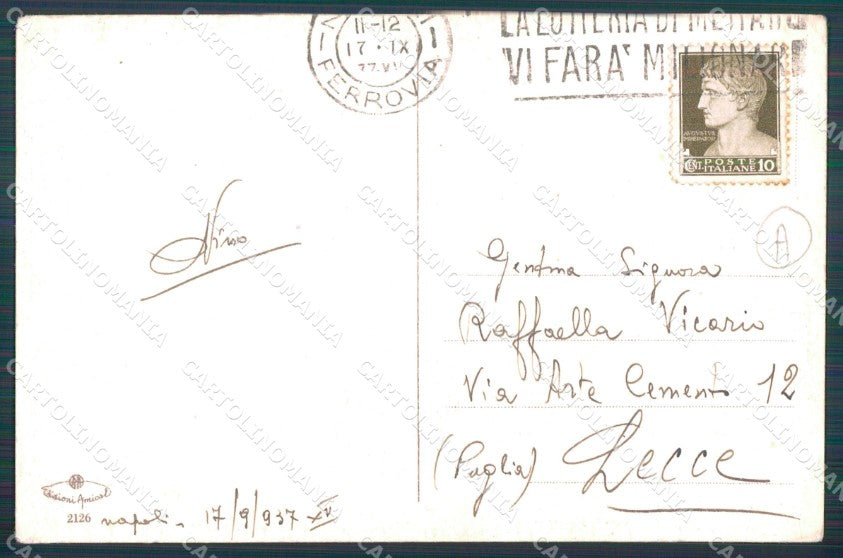 11-12
17·IX
FERROVIA
LA LOTTERIA DI MERANO
VI FARA' MILIONARI
AVGVSTVS
IMPERATOR
CENT. POSTE ITALIANE 10
A
Nino
Gentma Signora
Raffaella Vicario
Via Arte Cemento 12
(Puglia) Lecce
Edizioni Amical
2126 napoli - 17/9/937 XV
CARTOLINOMANIA